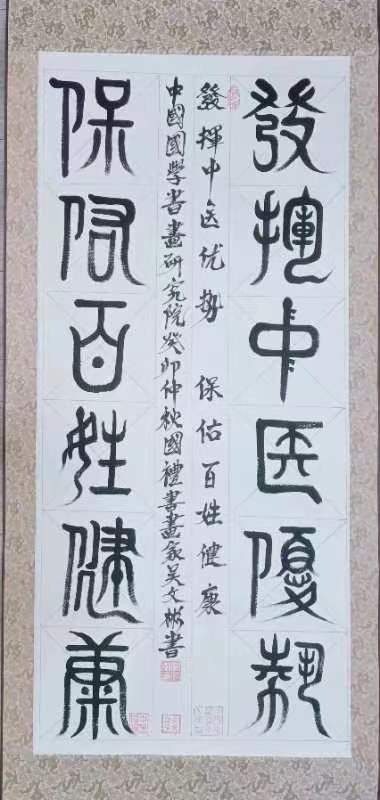 發揮中医優勢
發揮中医优势 保佑百姓健康
中國國學書畫研究院癸卯仲秋國禮書畫家吴文彬書
保佑百姓健康